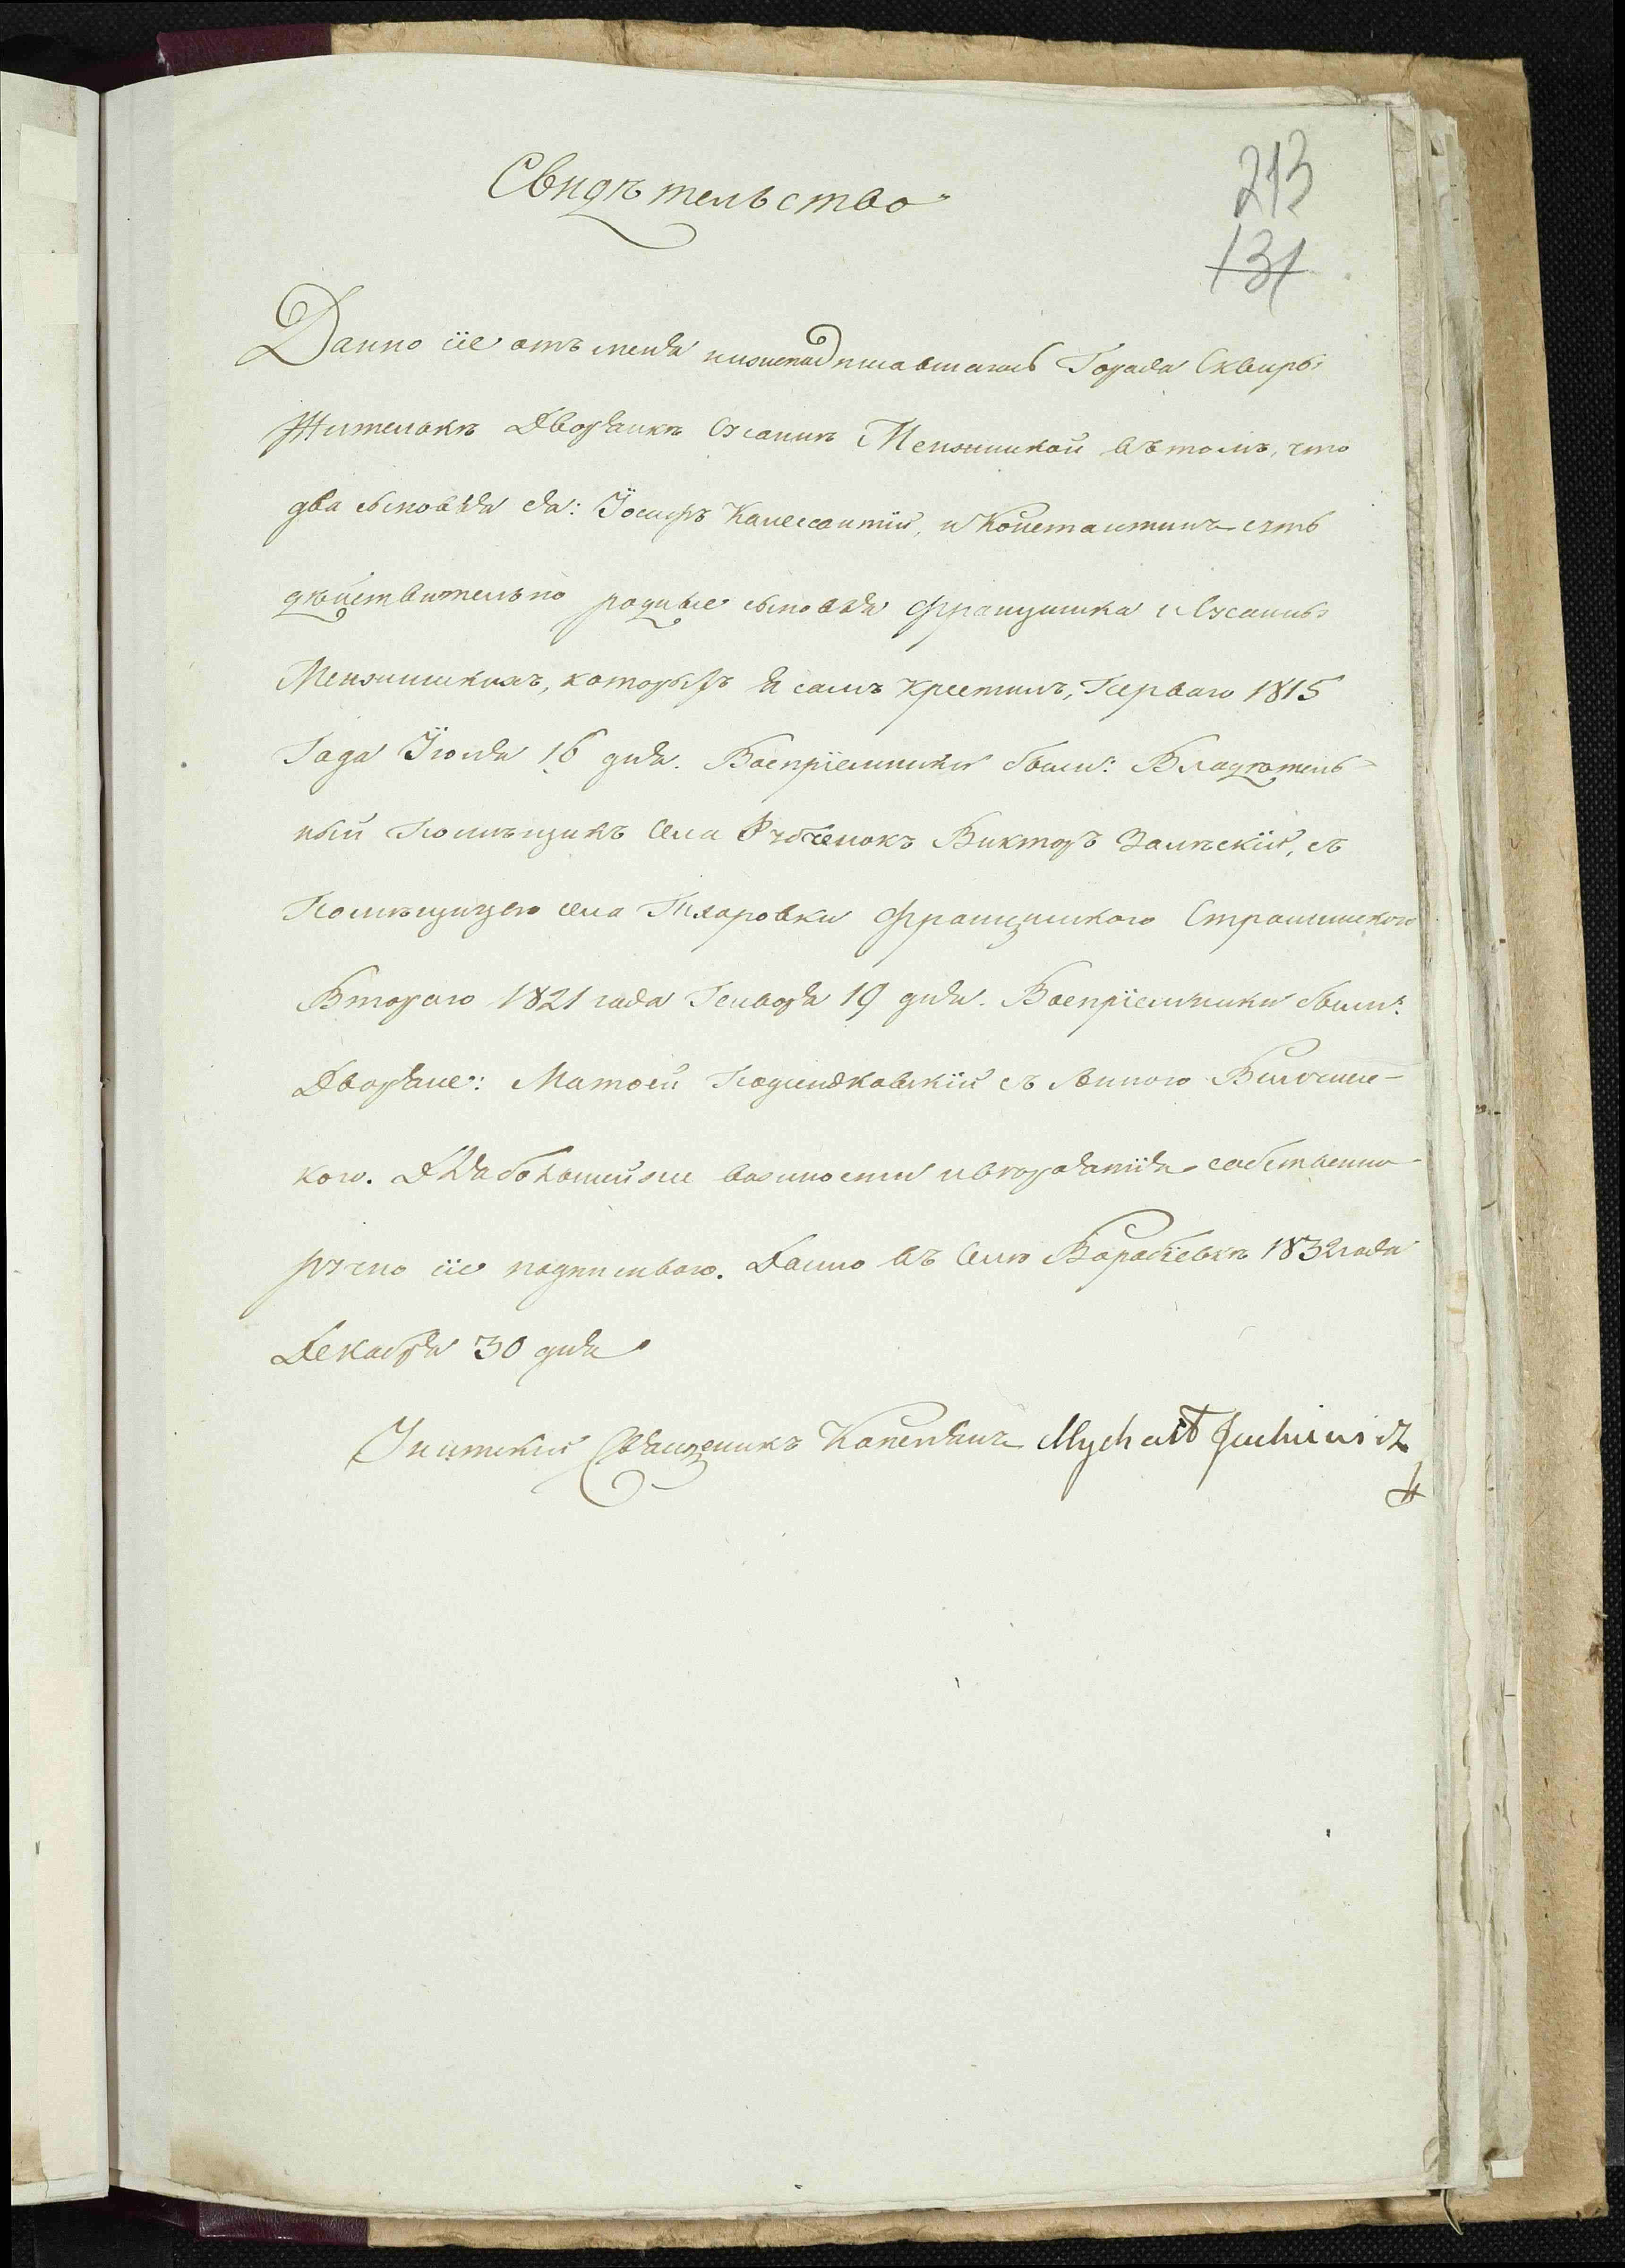 Свидѣтельство
213
131
Данно сіе отъ меня нижеподписавшагось Города Сквиры
Жителькѣ Дворянкѣ Оусаннѣ Менжинской въ томъ, что
два сыновья ея: Іосифъ Калессантій, и Константинъ суть
дѣйствительно родные сыновья Францишка и Оусанны
Менжинскихъ, которыхъ я самъ крестилъ, Перваго 1815
Года Іюля 16 дня. Воспріемники были: Владѣтель-
ный Помѣщикъ Села Рубченокъ Викторъ Залѣскій, съ
Помѣщицею села Тхаровки Францишкою Страшинскою
Втораго 1821 года Генваря 19 дня. Воспріемники были:
Дворяне: Матѳей съ Анною
кою. Для большей же важности и вѣроятія собственно-
ручно сіе подписываю. Данно въ Селѣ Барабіевкѣ 1832 года
Декабря 30 дня
Унитскій Священникъ Капелянъ Mychał